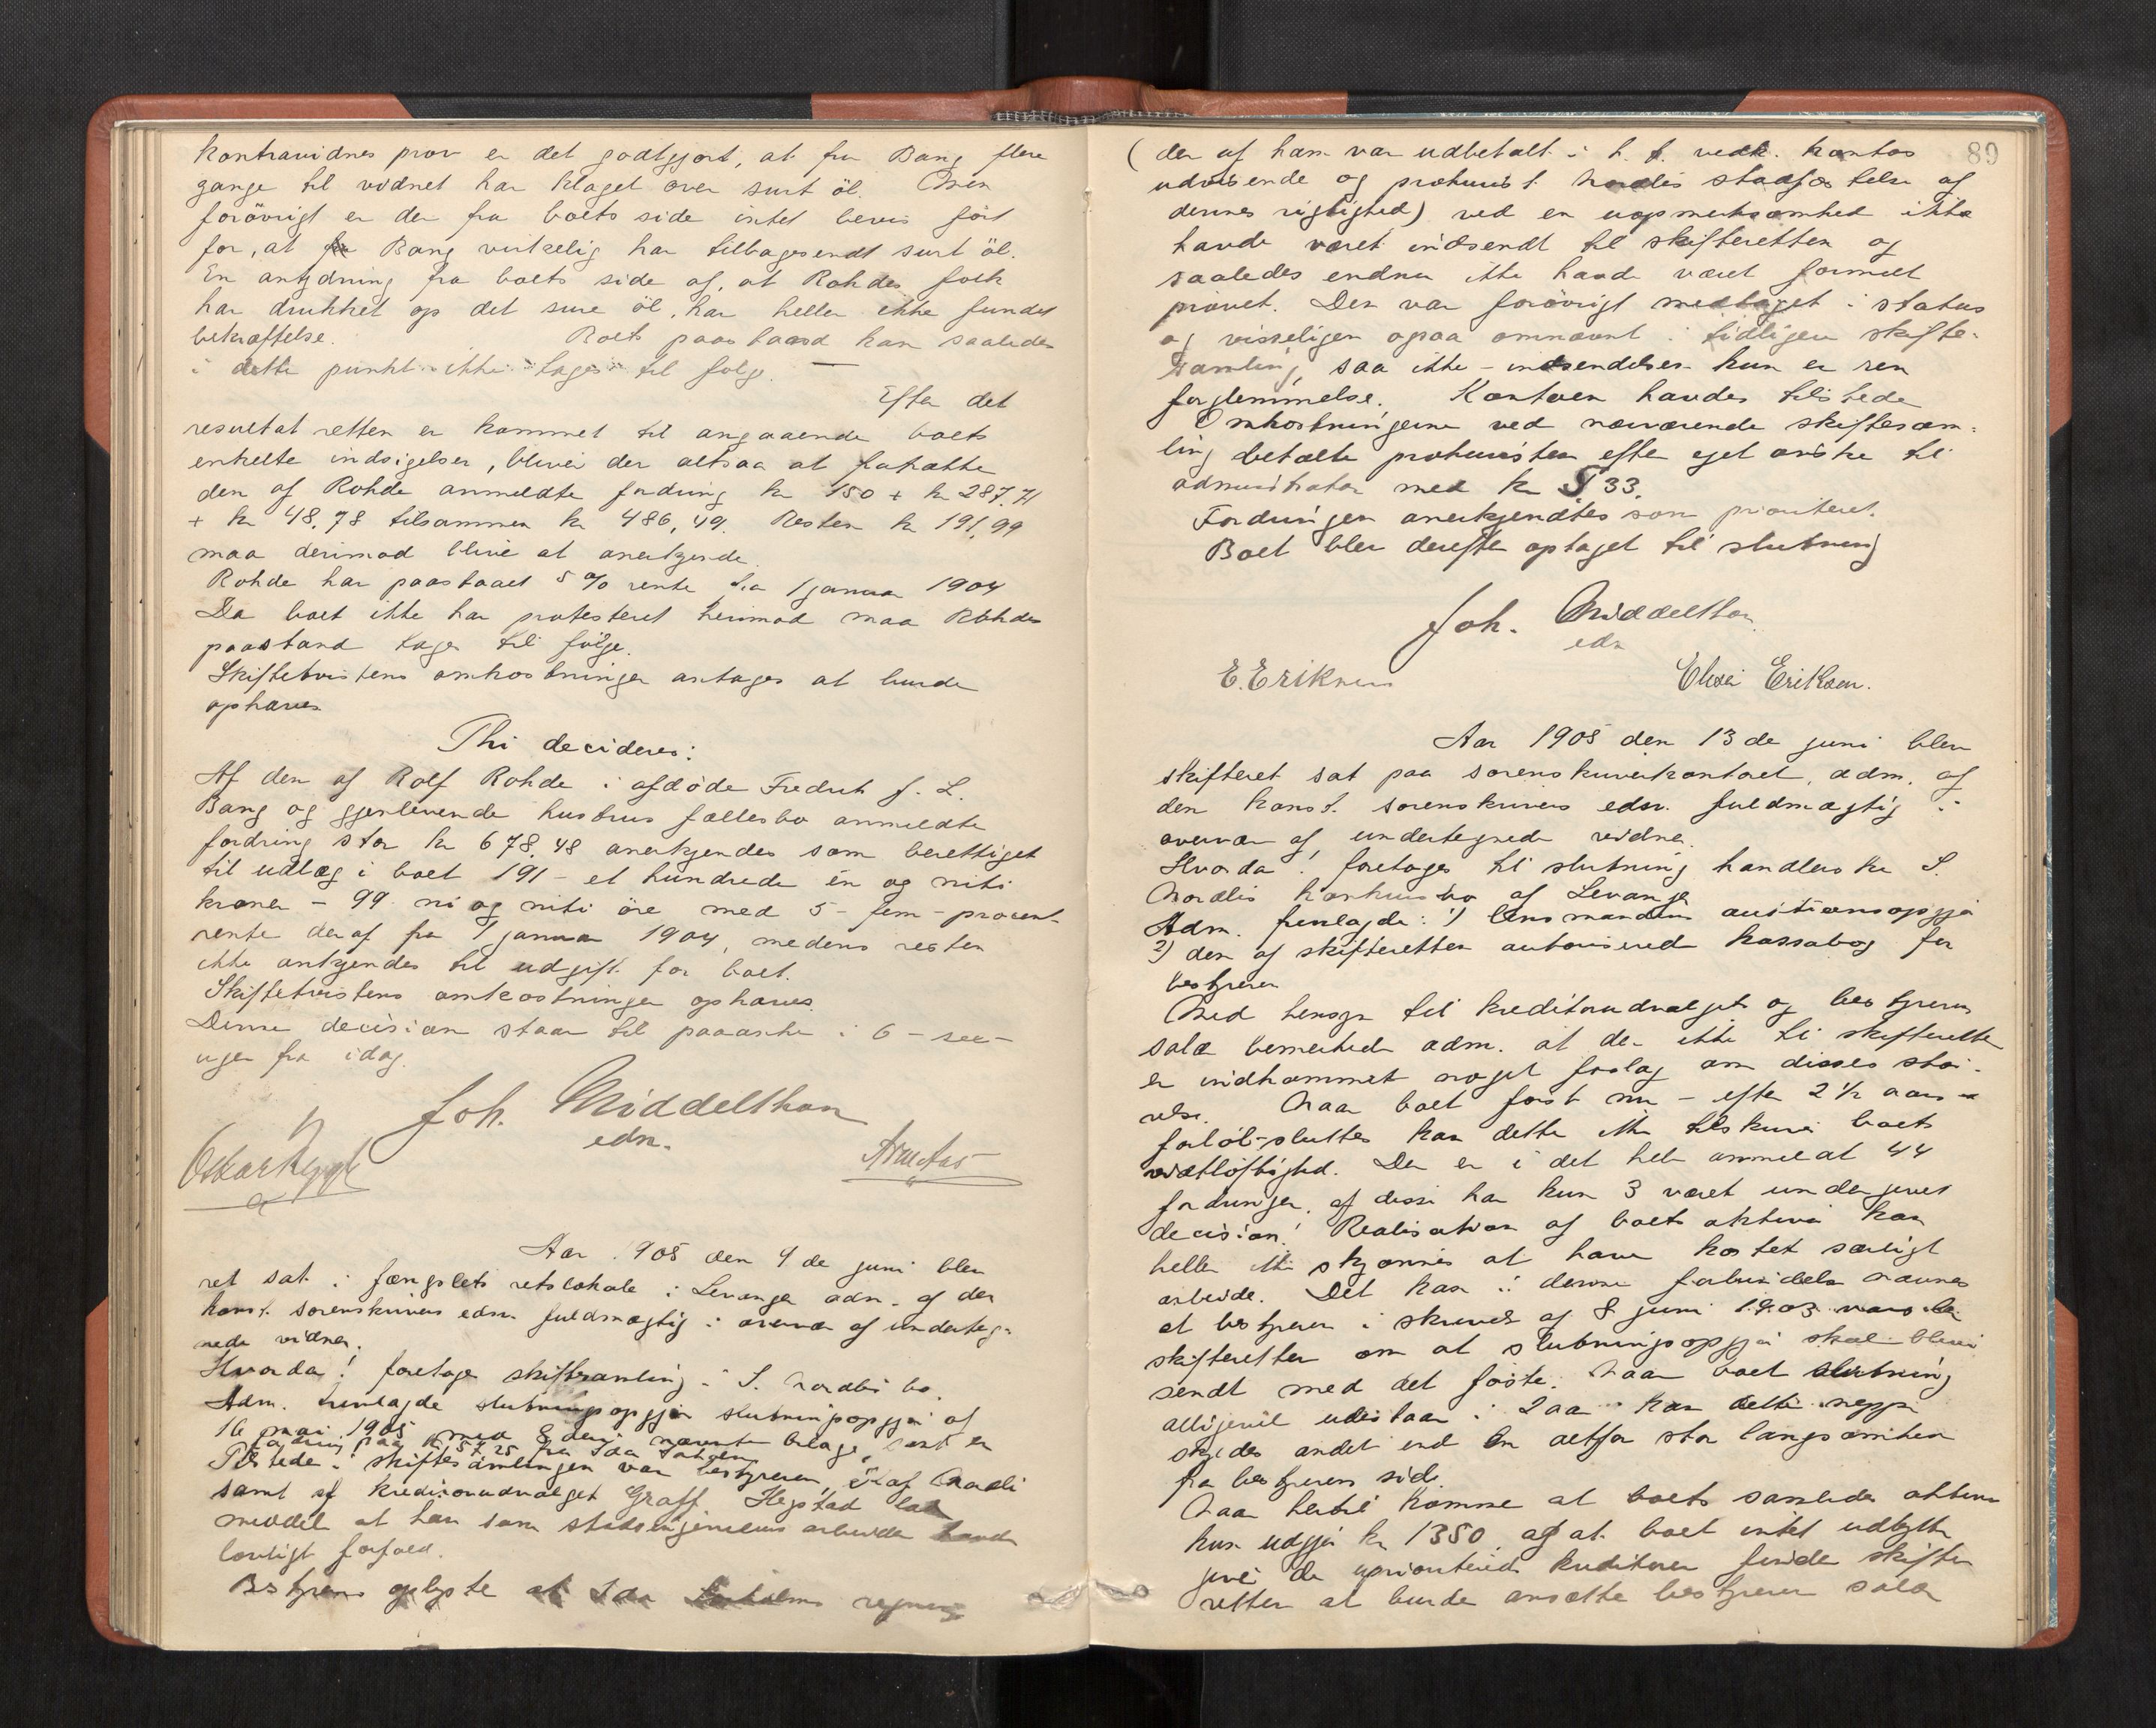 kontravidnes prov er det godtgjort, at fru Bang flere
gange til vidnet har klaget over surt öl. Men
forövrigt er der fra boets side intet bevis fört
for, at fru Bang virkelig har tilbagesendt surt öl.
En antydning fra boets side af, at Rohdes folk
har drukket op det sure öl, har heller ikke fundet
bekræftelse. Boets paastand kan saaledes
i dette punkt ikke tages til følge. —
Efter det
resultat retten er kommet til angaaende boets
enkelte indsigelser, bliver der altsaa at fratrække
den af Rohde anmeldte fordring kr 150 + kr 287.71
+ kr 48,78 tilsammen kr 486,49. Resten kr 191,99
maa derimod blive at anerkjende.
Rohde har paastaaet 5 % rente fra 1 januar 1904
Da boet ikke har protesteret herimod maa Rohdes
paastand tages til følge.
Skiftetvistens omkostninger antages at burde
ophæves
Thi decideres:
Af den af Rolf Rohde i afdöde Fredrik f. L.
Bang og gjenlevende hustrus fællesbo anmeldte
fordring stor kr 678,48 anerkjendes som berettiget
til udlæg i boet 191 - et hundrede én og niti
kroner - 99 ni og niti öre med 5 - fem - procent
rente deraf fra 1 januar 1904, medens resten
ikke ankjendes til udgift for boet.
Skiftetvistens omkostninger ophæves.
Denne decision staar til paaanke i 6 - sex -
uger fra idag.
Joh. Middelthon
edsv.
Aar 1905 den 4 de juni blev
ret sat i fængslets retslokale i Levanger adm. af den
konst. sorenskrivers edsv. fuldmægtig i overvær af underteg-
nede vidner.
Hvorda! foretoges skiftesamling i S. Nordlis bo.
Adm. fremlagde slutningsopgjör slutningsopgjör af
16 mai 1905 med 8 deri nævnte bilage, samt en
fordring paa kr 57.25 fra Ida
Tilstede i skiftesamlingen var bestyreren, Olaf Nordli
samt af kreditorudvalget Graff. Hegstad lod
meddele at han som statsingeniørens arbeider havde
lovligt forfald.
Bestyreren oplyste at Ida regning
89
(der af ham var udbetalt i h. t. vedk. kontos
udvisende og prokurist Nordlis stadfæstelse af
dennes rigtighed) ved en uopmerksomhed ikke
havde været indsendt til skifteretten og
saaledes endnu ikke havde været formelt
prøvet. Den var forövrigt medtaget i status
og visseligen ogsaa omnævnt i tidligere skifte-
samling, saa ikke-indsendelsen kun er ren
forglemmelse. Kontoen havdes tilstede
Omkostningerne ved nærværende skiftesam-
ling betalte prokuristen efter eget ønske til
administrator med kr 33.
Fordringen anerkjendtes som prioriteret.
Boet blev derefter optaget til slutning
Joh. Middelthon
edsv
E. Eriksen
Eliser Eriksen.
Aar 1905 den 13 de juni blev
skifteret sat paa sorenskriverkontoret, adm. af
den konst. sorenskrivers edsv. fuldmægtig i
overvær af undertegnede vidner.
Hvorda! foretoges til slutning handlerske S.
Nordlis konkursbo af Levanger
Adm. fremlagde: 1) lensmandens auktionsopgjør
2) den af skifteretten autoriserede kassabog for
bestyreren
Med hensyn til kreditorudvalgets og bestyrerens
salær bemerkede adm. at der ikke til skifteretten
er indkommet noget forslag om disses stör-
relse. Naar boet først nu - efter 2 1/2 aars
forløb - sluttes kan dette ikke tilskrives boets
vidtlöftighed. Der er i det hele anmeldt 44
fordringer, af disse har kun 3 været undergivet
decision! Realisation af boets aktiva kan
heller ikke skjønnes at have kostet særligt
arbeide. Det kan i denne forbindelse nævnes
at bestyreren i skrivelse af 8 juni 1903 varslede
skifteretten om at slutningsopgjör skal blive
sendt med det förste. Naar boet slutning
alligevel udestaar i 2 aar kan dette neppe
skyldes andet end en altfor stor langsomhed
fra bestyrerens side.
Naar hertil kommer at boets samlede aktiva
kun udgjör kr 1350 og at boet intet udbytte
giver de uprioriterede kreditorer finder skifte-
retten at burde ansætte bestyrerens salær